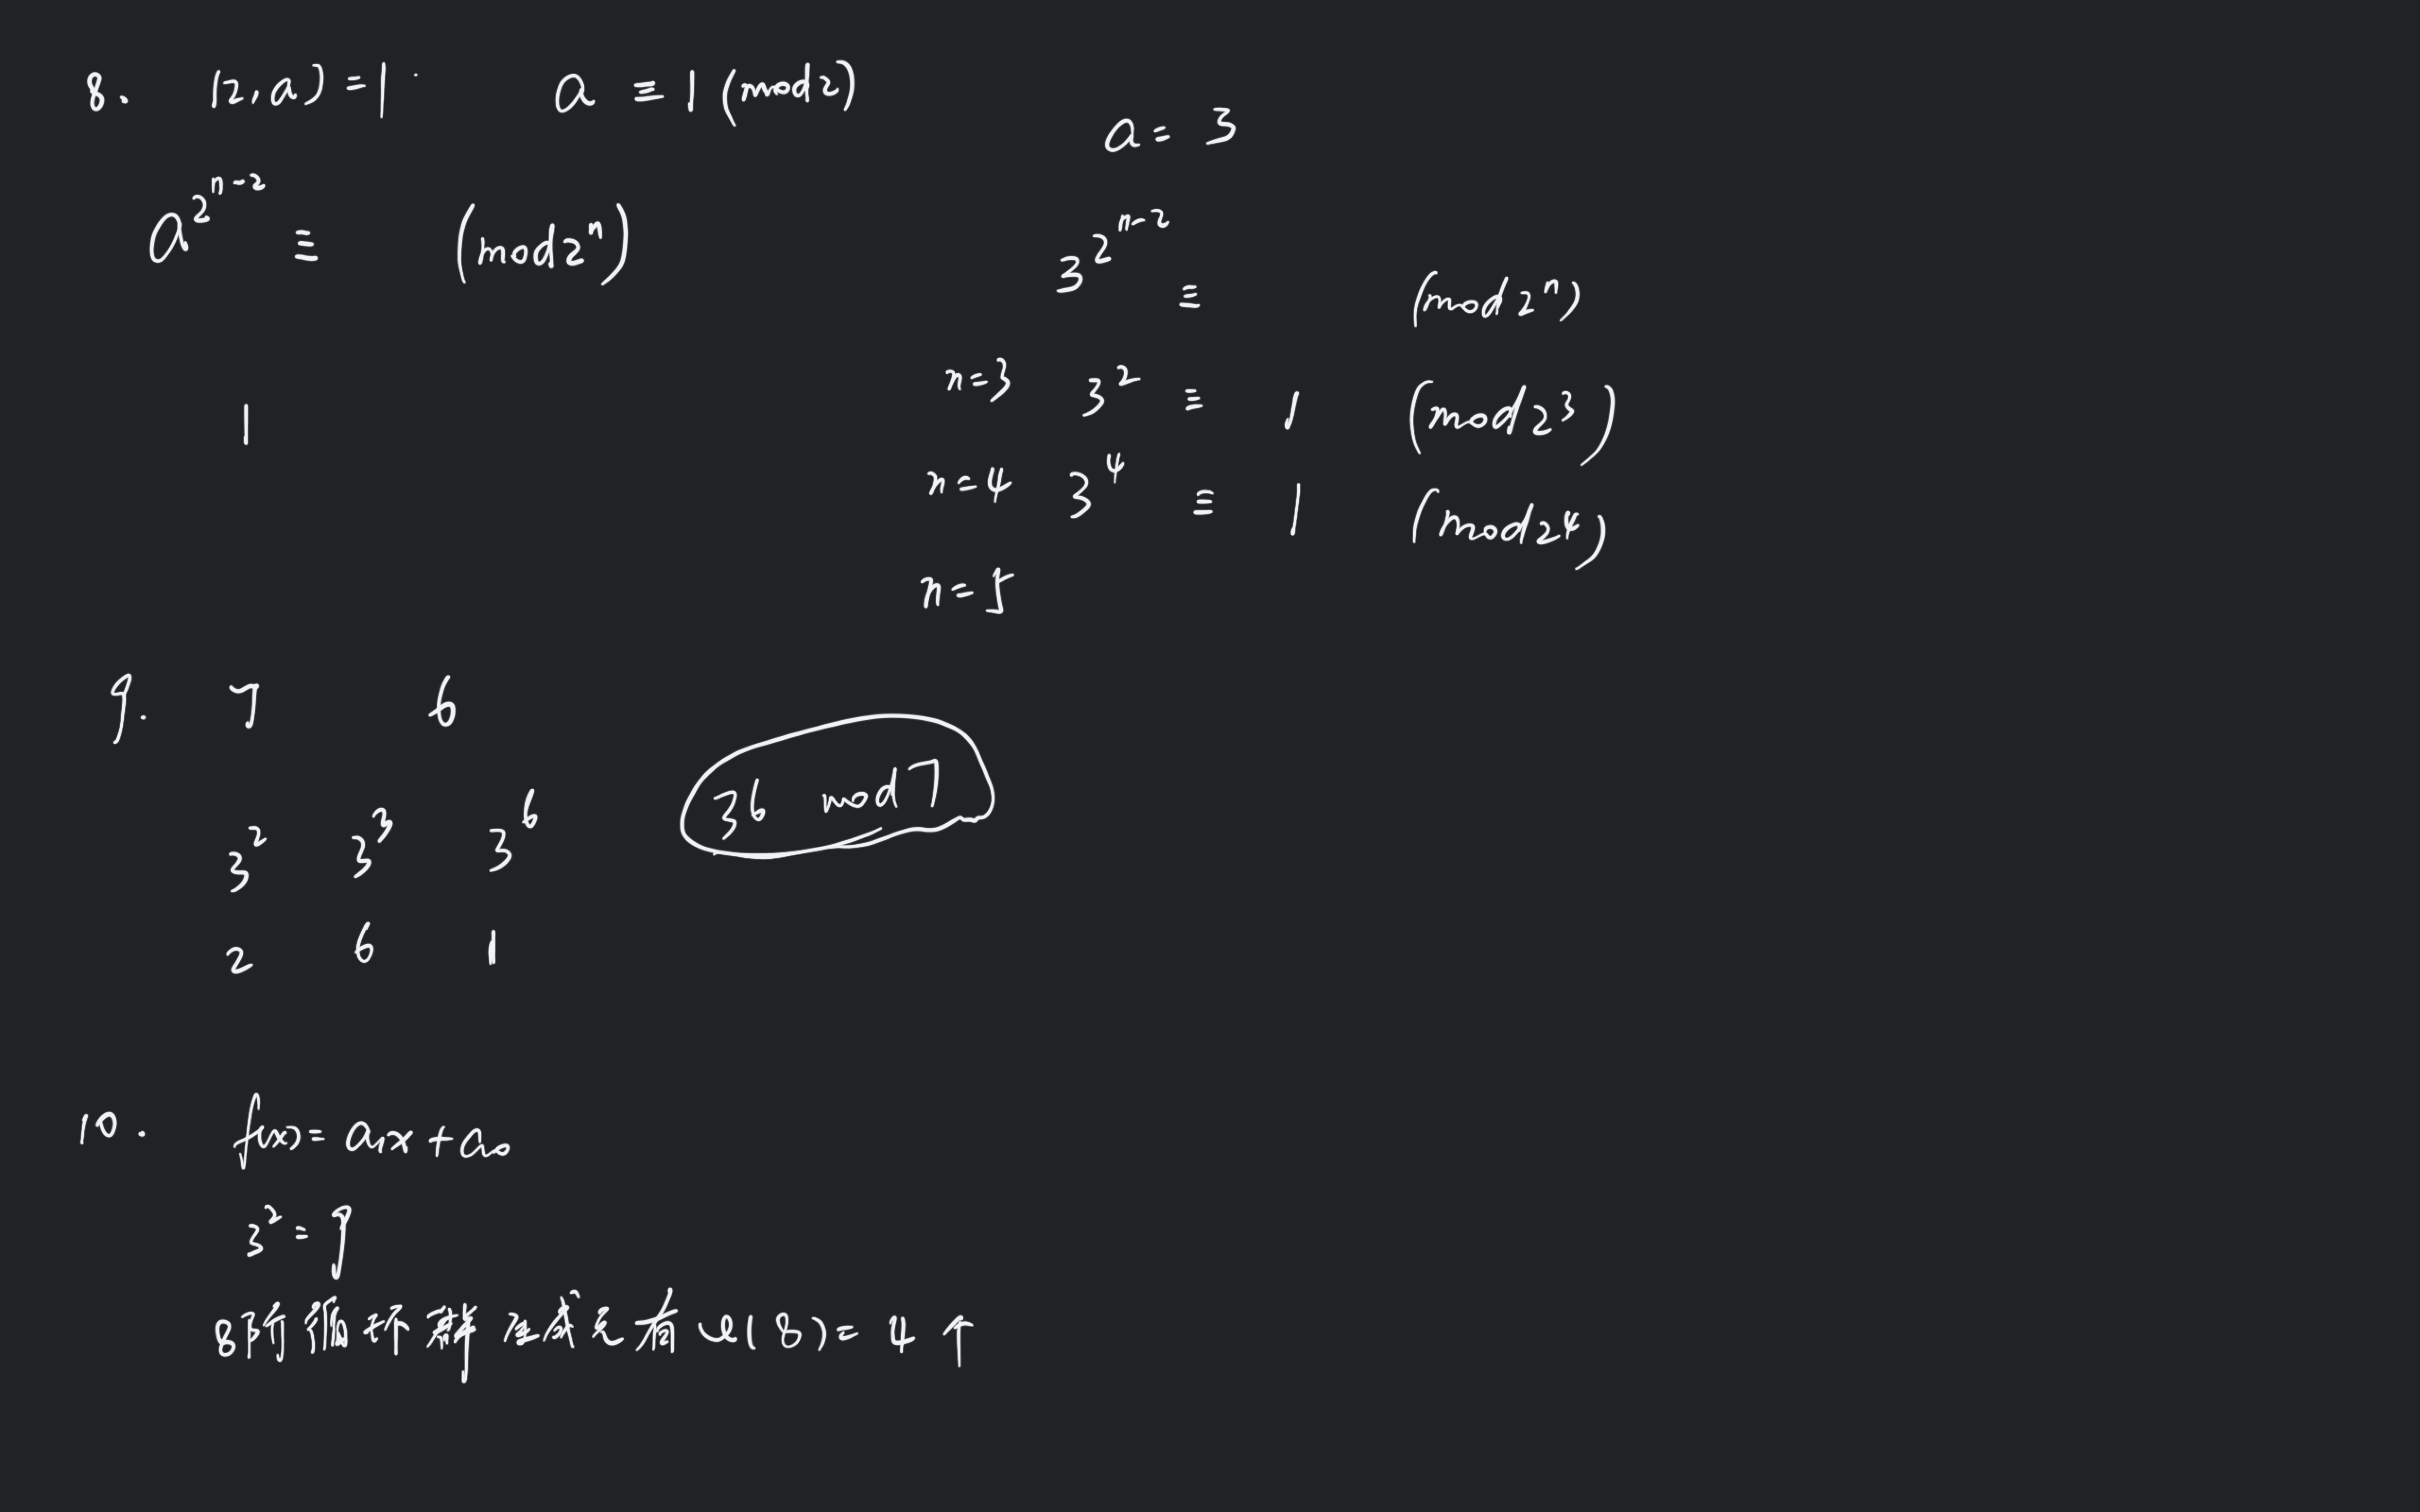 8、 (2,a)=1. a ≡ 1 (mod 2)
a = 3
a^{2^{n-2}} ≡ (mod 2^n)
3^{2^{n-2}} ≡ (mod 2^n)
n=3 3^2 ≡ 1 (mod 2^3)
1
n=4 3^4 ≡ 1 (mod 2^4)
n=5
9. 7 6
36 mod 7
3^2 3^3 3^6
2 6 1
10. f(x)=a₁x+a₀
3^2=9
8阶循环群生成元有φ(8)=4个